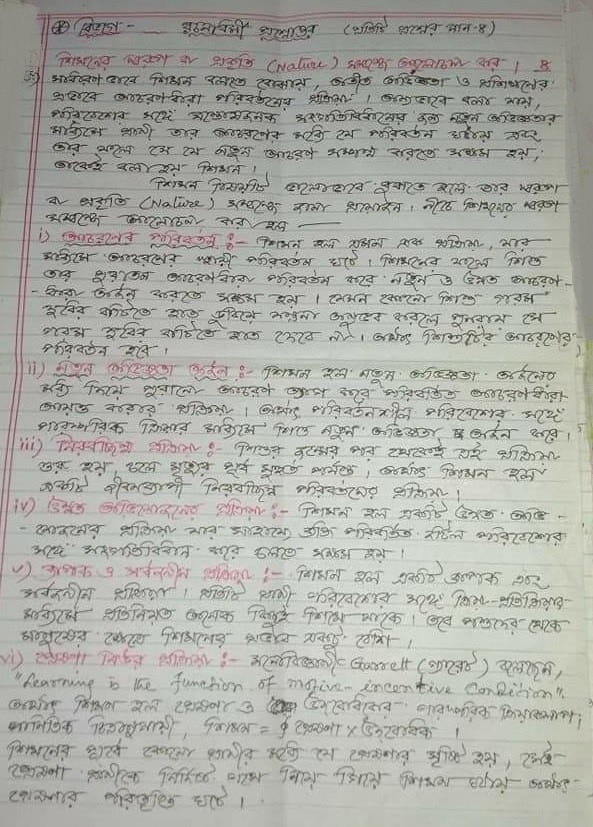 রচনাধর্মী প্রশ্নোত্তর (প্রতিটি প্রশ্নের মান-৪)
শিখনের স্বরূপ বা প্রকৃতি (Nature) সম্বন্ধে আলোচনা কর। 8
সাধারণভাবে শিখন বলতে বোঝায়, অতীত অভিজ্ঞতা ও প্রশিক্ষণের
প্রভাবে আচরণধারা পরিবর্তনের প্রক্রিয়া। অন্যভাবে বলা যায়,
পরিবেশের সঙ্গে সন্তোষজনক সঙ্গতিবিধানের জন্য নতুন অভিজ্ঞতার
মাধ্যমে প্রাণী তার আচরণের মধ্যে যে পরিবর্তন ঘটায় এবং
তার ফলে সে যে নতুন আচরণ সম্পন্ন করতে সক্ষম হয়,
তাকেই বলা হয় শিখন।
শিখন বিষয়টি ভালোভাবে বুঝতে হলে তার স্বরূপ
বা প্রকৃতি (Nature) সম্বন্ধে জানা প্রয়োজন। নীচে শিখনের স্বরূপ
সম্বন্ধে আলোচনা করা হল —
i) আচরণের পরিবর্তন :- শিখন হল এমন এক প্রক্রিয়া, যার
মাধ্যমে আচরণের স্থায়ী পরিবর্তন ঘটে। শিখনের ফলে শিশু
তার পুরাতন আচরণধারা পরিবর্তন করে নতুন ও উন্নত আচরণ-
-ধারা অর্জন করতে সক্ষম হয়। যেমন কোনো শিশু গরম
দুধের বাটিতে হাত ডুবিয়ে যন্ত্রণা অনুভব করলে পুনরায় সে
গরম দুধের বাটিতে হাত দেবে না। অর্থাৎ শিশুটির আচরণের
পরিবর্তন হবে।
ii) নতুন অভিজ্ঞতা অর্জন :- শিখন হল নতুন অভিজ্ঞতা অর্জনের
মধ্য দিয়ে পুরানো আচরণ ত্যাগ করে পরিবর্তিত আচরণধারা
আয়ত্ত করার প্রক্রিয়া। অর্থাৎ পরিবর্তনশীল পরিবেশের সঙ্গে
পারস্পরিক ক্রিয়ার মাধ্যমে শিশু নতুন অভিজ্ঞতা অর্জন করে।
iii) নিরবচ্ছিন্ন প্রক্রিয়া :- শিশুর জন্মের পর থেকেই এই প্রক্রিয়া
শুরু হয়, চলে মৃত্যুর পূর্ব মুহূর্ত পর্যন্ত। অর্থাৎ শিখন হল
একটি জীবনব্যাপী নিরবচ্ছিন্ন পরিবর্তনের প্রক্রিয়া।
iv) উন্নত অভিযোজনের প্রক্রিয়া :- শিখন হল একটি উন্নত অভি-
-যোজনের প্রক্রিয়া যার সাহায্যে প্রাণী পরিবর্তিত জটিল পরিবেশের
সঙ্গে সঙ্গতিবিধান করে চলতে সক্ষম হয়।
v) ব্যাপক ও সার্বজনীন প্রক্রিয়া :- শিখন হল একটি ব্যাপক এবং
সার্বজনীন প্রক্রিয়া। প্রতিটি প্রাণী পরিবেশের সঙ্গে ক্রিয়া-প্রতিক্রিয়ার
মাধ্যমে প্রতিনিয়ত অনেক কিছুই শিখে থাকে। তবে পশুদের থেকে
মানুষের ক্ষেত্রে শিখনের প্রভাব একটু বেশি।
vi) প্রেষণা নির্ভর প্রক্রিয়া :- মনোবিজ্ঞানী Garrett (গ্যারেট) বলেছেন,
"Learning is the function of motive-incentive Condition".
অর্থাৎ শিখন হল প্রেষণা ও উদ্বোধকের পারস্পরিক ক্রিয়াকলাপ;
গাণিতিক নিয়মানুযায়ী, শিখন = প্রেষণা × উদ্বোধক।
শিখনের পূর্বে কোনো প্রাণীর মধ্যে যে প্রেষণার সৃষ্টি হয়, সেই
প্রেষণা প্রাণীকে নির্দিষ্ট পথে নিয়ে গিয়ে শিখন ঘটায় অর্থাৎ
প্রেষণার পরিতৃপ্তি ঘটে।